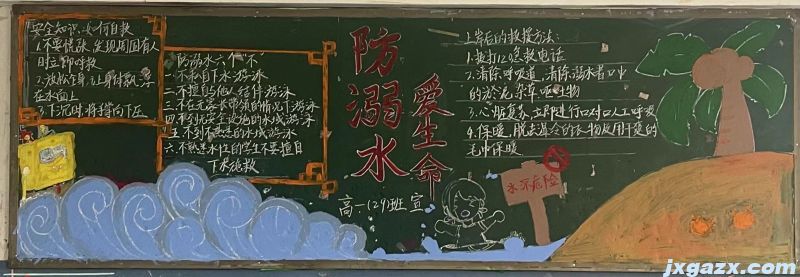 安全知识，如何自救
1.不要慌张，发现周围有人
时立即呼救
2.放松全身，让身体飘浮
在水面上
3.下沉时将手掌向下压
防溺水六个“不”
一.不私自下水游泳
二.不擅自与他人结伴游泳
三.不在无家长带领的情况下游泳
四.不到无安全设施的水域游泳
五.不到不熟悉的水域游泳
六.不熟悉水性的学生不要擅自
下水施救
防溺水
爱生命
高一(29)班 宣
上岸后的救援方法:
1.拨打120急救电话
2.清除呼吸道,清除溺水者口中
的淤泥、杂草、呕吐物
3.心脏复苏,立即进行口对口人工呼吸
4.保暖,脱去湿冷的衣物
毛巾保暖
水深危险
jxgazx.com